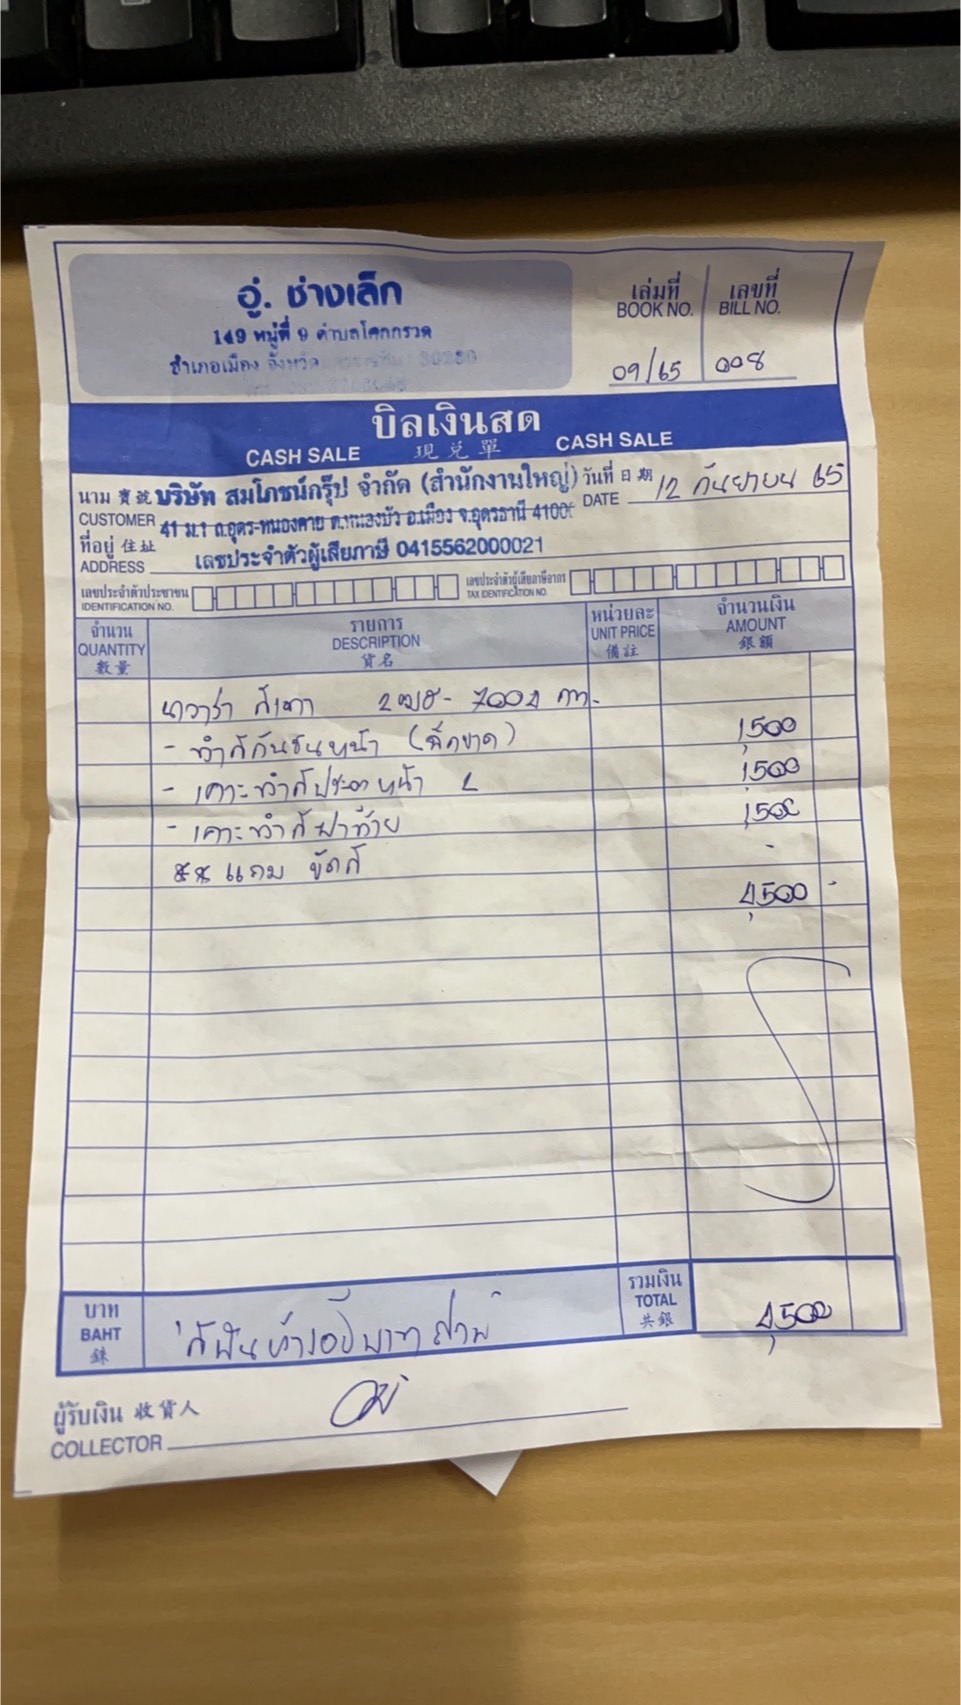 อู่. ช่างเล็ก
149 หมู่ที่ 9 ตำบลโคกกรวด
อำเภอเมือง จังหวัด 30280
เล่มที่ เลขที่
BOOK NO. BILL NO.
09/65 008
บิลเงินสด
CASH SALE 現兌單 CASH SALE
นาม 寶號 บริษัท สมโภชน์กรุ๊ป จำกัด (สำนักงานใหญ่) วันที่ 日期 12 กันยายน 65
CUSTOMER 41 ม.1 ถ.อุดร-หนองคาย ต.หนองบัว อ.เมือง จ.อุดรธานี 41000 DATE
ที่อยู่ 住址 เลขประจำตัวผู้เสียภาษี 0415562000021
ADDRESS
เลขประจำตัวประชาชน เลขประจำตัวผู้เสียภาษีอากร
IDENTIFICATION NO. TAX IDENTIFICATION NO.
จำนวน รายการ หน่วยละ จำนวนเงิน
QUANTITY DESCRIPTION UNIT PRICE AMOUNT
數量 貨名 備註 銀額
นาวาร่า สีเทา 2ฒช-7004 กท.
- ทำสีกันชนหน้า (ฉีกขาด) 1,500
- เคาะทำสีประตูหน้า L 1,500
- เคาะทำสีฝาท้าย 1,500
** แถม ขัดสี -
4,500 -
บาท รวมเงิน
BAHT สี่พันห้าร้อยบาทถ้วน TOTAL 4,500
銖 共銀
ผู้รับเงิน 收貨人
COLLECTOR